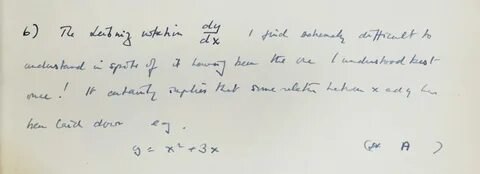 6) The Leibniz notation dy/dx I find extremely difficult to
understand in spite of it having been the one I understood best
once! It certainly implies that some relation between x and y has
been laid down e.g.
y = x² + 3x (A)